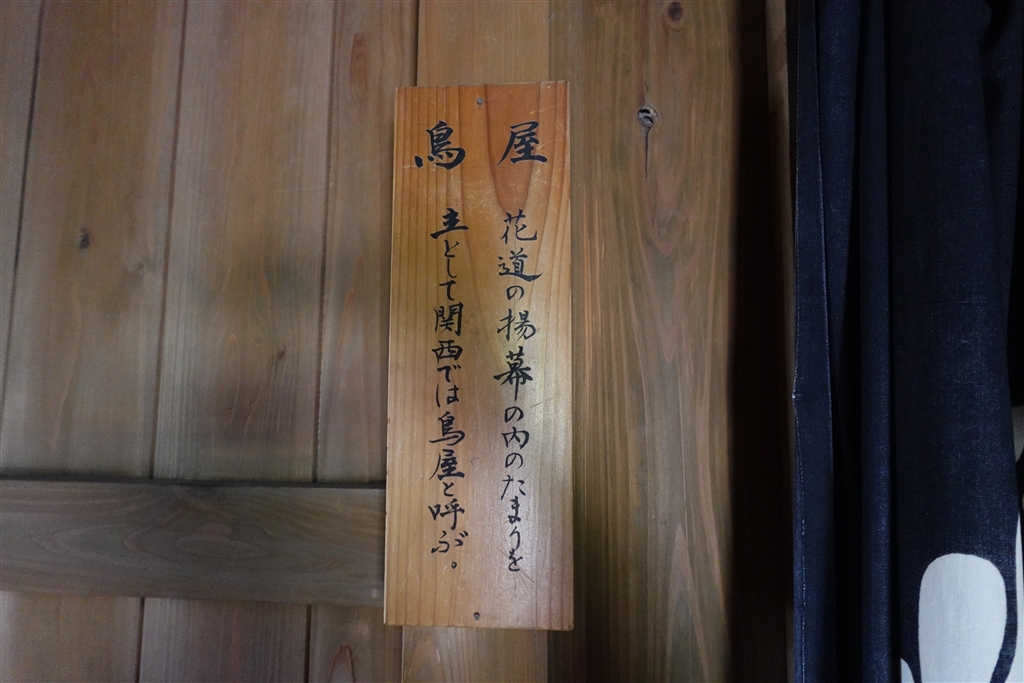 鳥屋
花道の揚幕の内のたまりを
主として関西では鳥屋と呼ぶ。